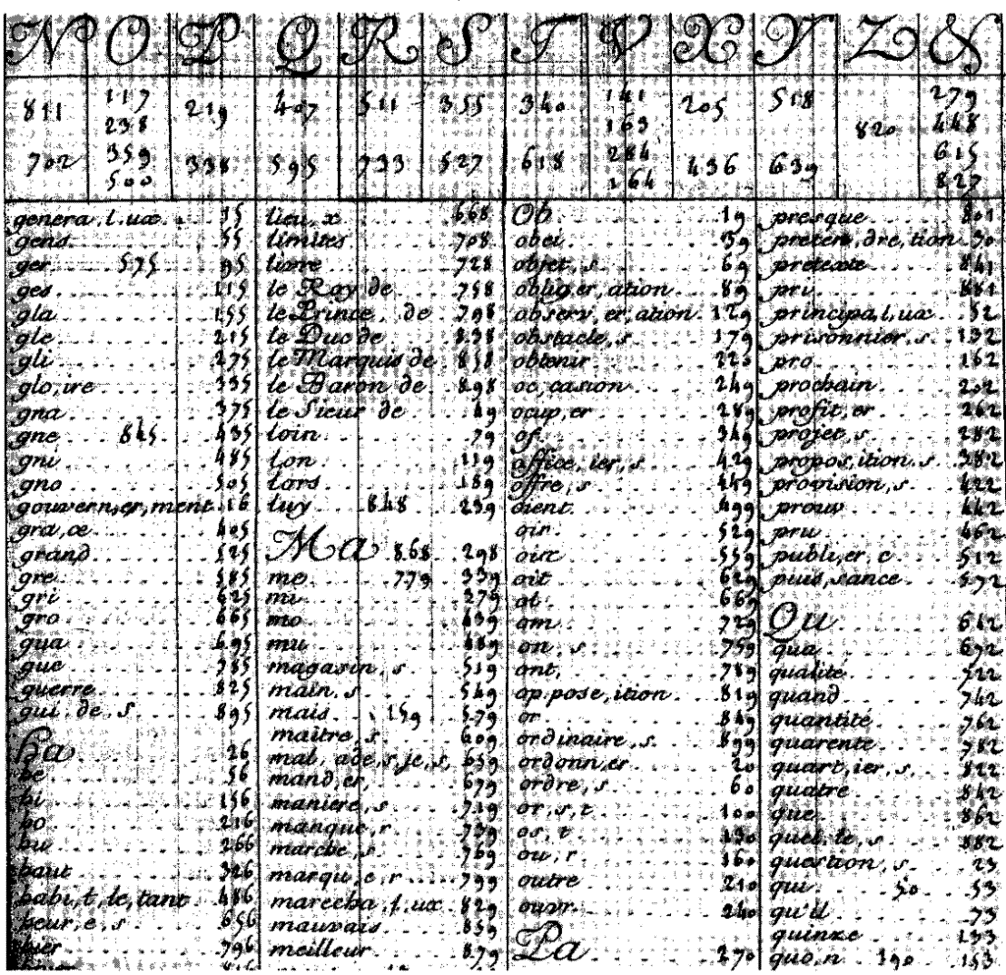 N O P Q R S T V X Y Z &
811 117 219 407 511 355 340 141 205 518 279
238 163 820 448
702 359 338 595 733 527 618 284 436 639 615
500 164 827
genera, l. ux 35
gens 55
ger 575 95
ges 115
gla 155
gle 215
gli 275
glo, ire 335
gna 375
gne 845 435
gni 485
gno 505
gouvern, er, ment 16
gra, ce 405
grand 525
gre 585
gri 625
gro 665
gua 695
gue 785
guerre 825
gui. de. s 895
ha 26
he 56
hi 156
ho 216
hu 266
haut 326
habi, t, le, tant 486
heur, e, s 656
hier 796
lieu, x 668
limites 708
livre 728
le Roy de 758
le Prince de 798
le Duc de 838
le Marquis de 858
le Baron de 898
le Sieur de 49
loin 79
lon 119
lors 189
luy 848 239
Ma 868 298
me 779 339
mi 379
mo 439
mu 489
magasin, s 519
main, s 549
mais 159 579
maitre, s 609
mal, ade, s, je, s 659
mand, er 679
maniere, s 719
manque, r 739
marche, s 769
marqu, e, r 799
marecha, l. ux 829
mauvais 859
meilleur 879
Ob 19
obei 39
objet, s 69
oblig, er, ation 89
observ, er, ation 129
obstacle, s 179
obtenir 229
oc, casion 249
ocup, er 289
of 349
office, ier, s 429
offre, s 449
oient 499
oir 529
oire 559
oit 629
ol 669
om 729
on, s 759
ont 789
op, pose, ition 819
or 849
ordinaire, s 899
ordonn, er 20
ordre, s 60
or, s, t 100
os, t 130
ou, r 160
outre 210
ouvr 240
Pa 270
presque 801
preten, dre, tion 30
pretexte 841
pri 881
principa, l, ux 52
prisonnier, s 132
pro 162
prochain 202
profit, er 262
projet, s 282
propos, ition, s 382
provision, s 422
prouv 442
pru 462
publi, er, c 512
puis, sance 592
Qu 612
qua 692
qualité 722
quand 742
quantité 762
quarente 782
quart, ier, s 822
quatre 842
que 862
quel, le, s 882
question, s 23
qui 50 53
qu'il 73
quinze 133
quo, n 190 153